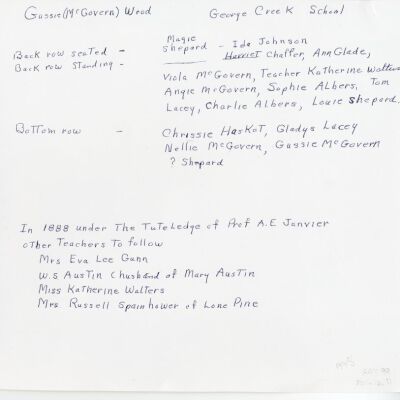 Gussie (McGovern) Wood George Creek School
Back row seated - Magie Shepard - Ida Johnson
Back row standing - Harriet Chaffer, Ann Glade,
Viola McGovern, Teacher Katherine Walters
Angie McGovern, Sophie Albers, Tom
Lacey, Charlie Albers, Louie Shepard.
Bottom row - Chrissie Haskot, Gladys Lacey
Nellie McGovern, Gussie McGovern
? Shepard
In 1888 under The Tuteledge of Prof A.E Janvier
other Teachers To follow
Mrs Eva Lee Gunn
W.S Austin (husband of Mary Austin
Miss Katherine Walters
Mrs Russell Spainhower of Lone Pine